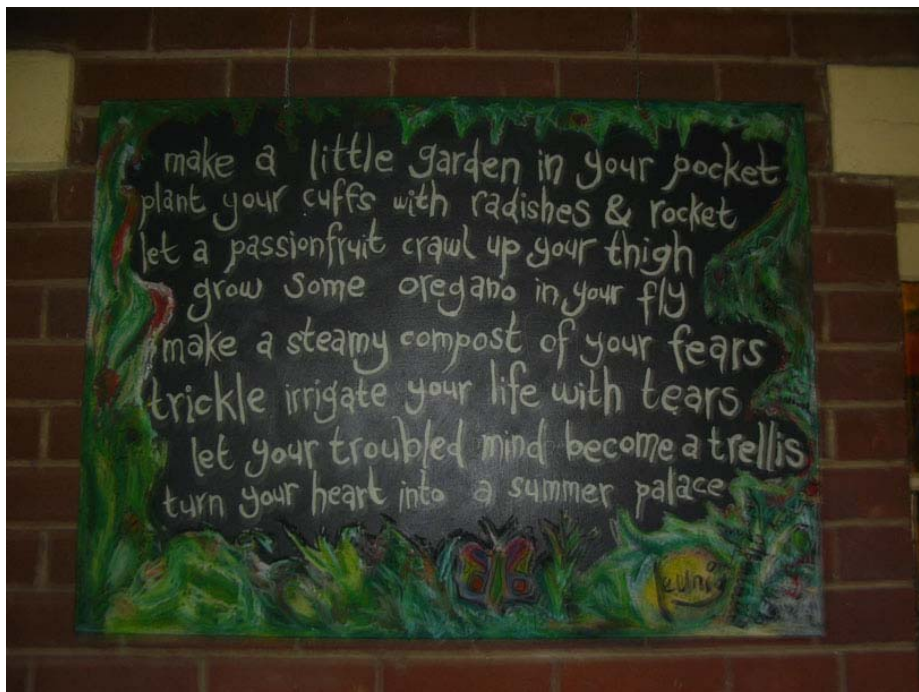 make a little garden in your pocket
plant your cuffs with radishes & rocket
let a passionfruit crawl up your thigh
grow some oregano in your fly
make a steamy compost of your fears
trickle irrigate your life with tears
let your troubled mind become a trellis
turn your heart into a summer palace
leunig